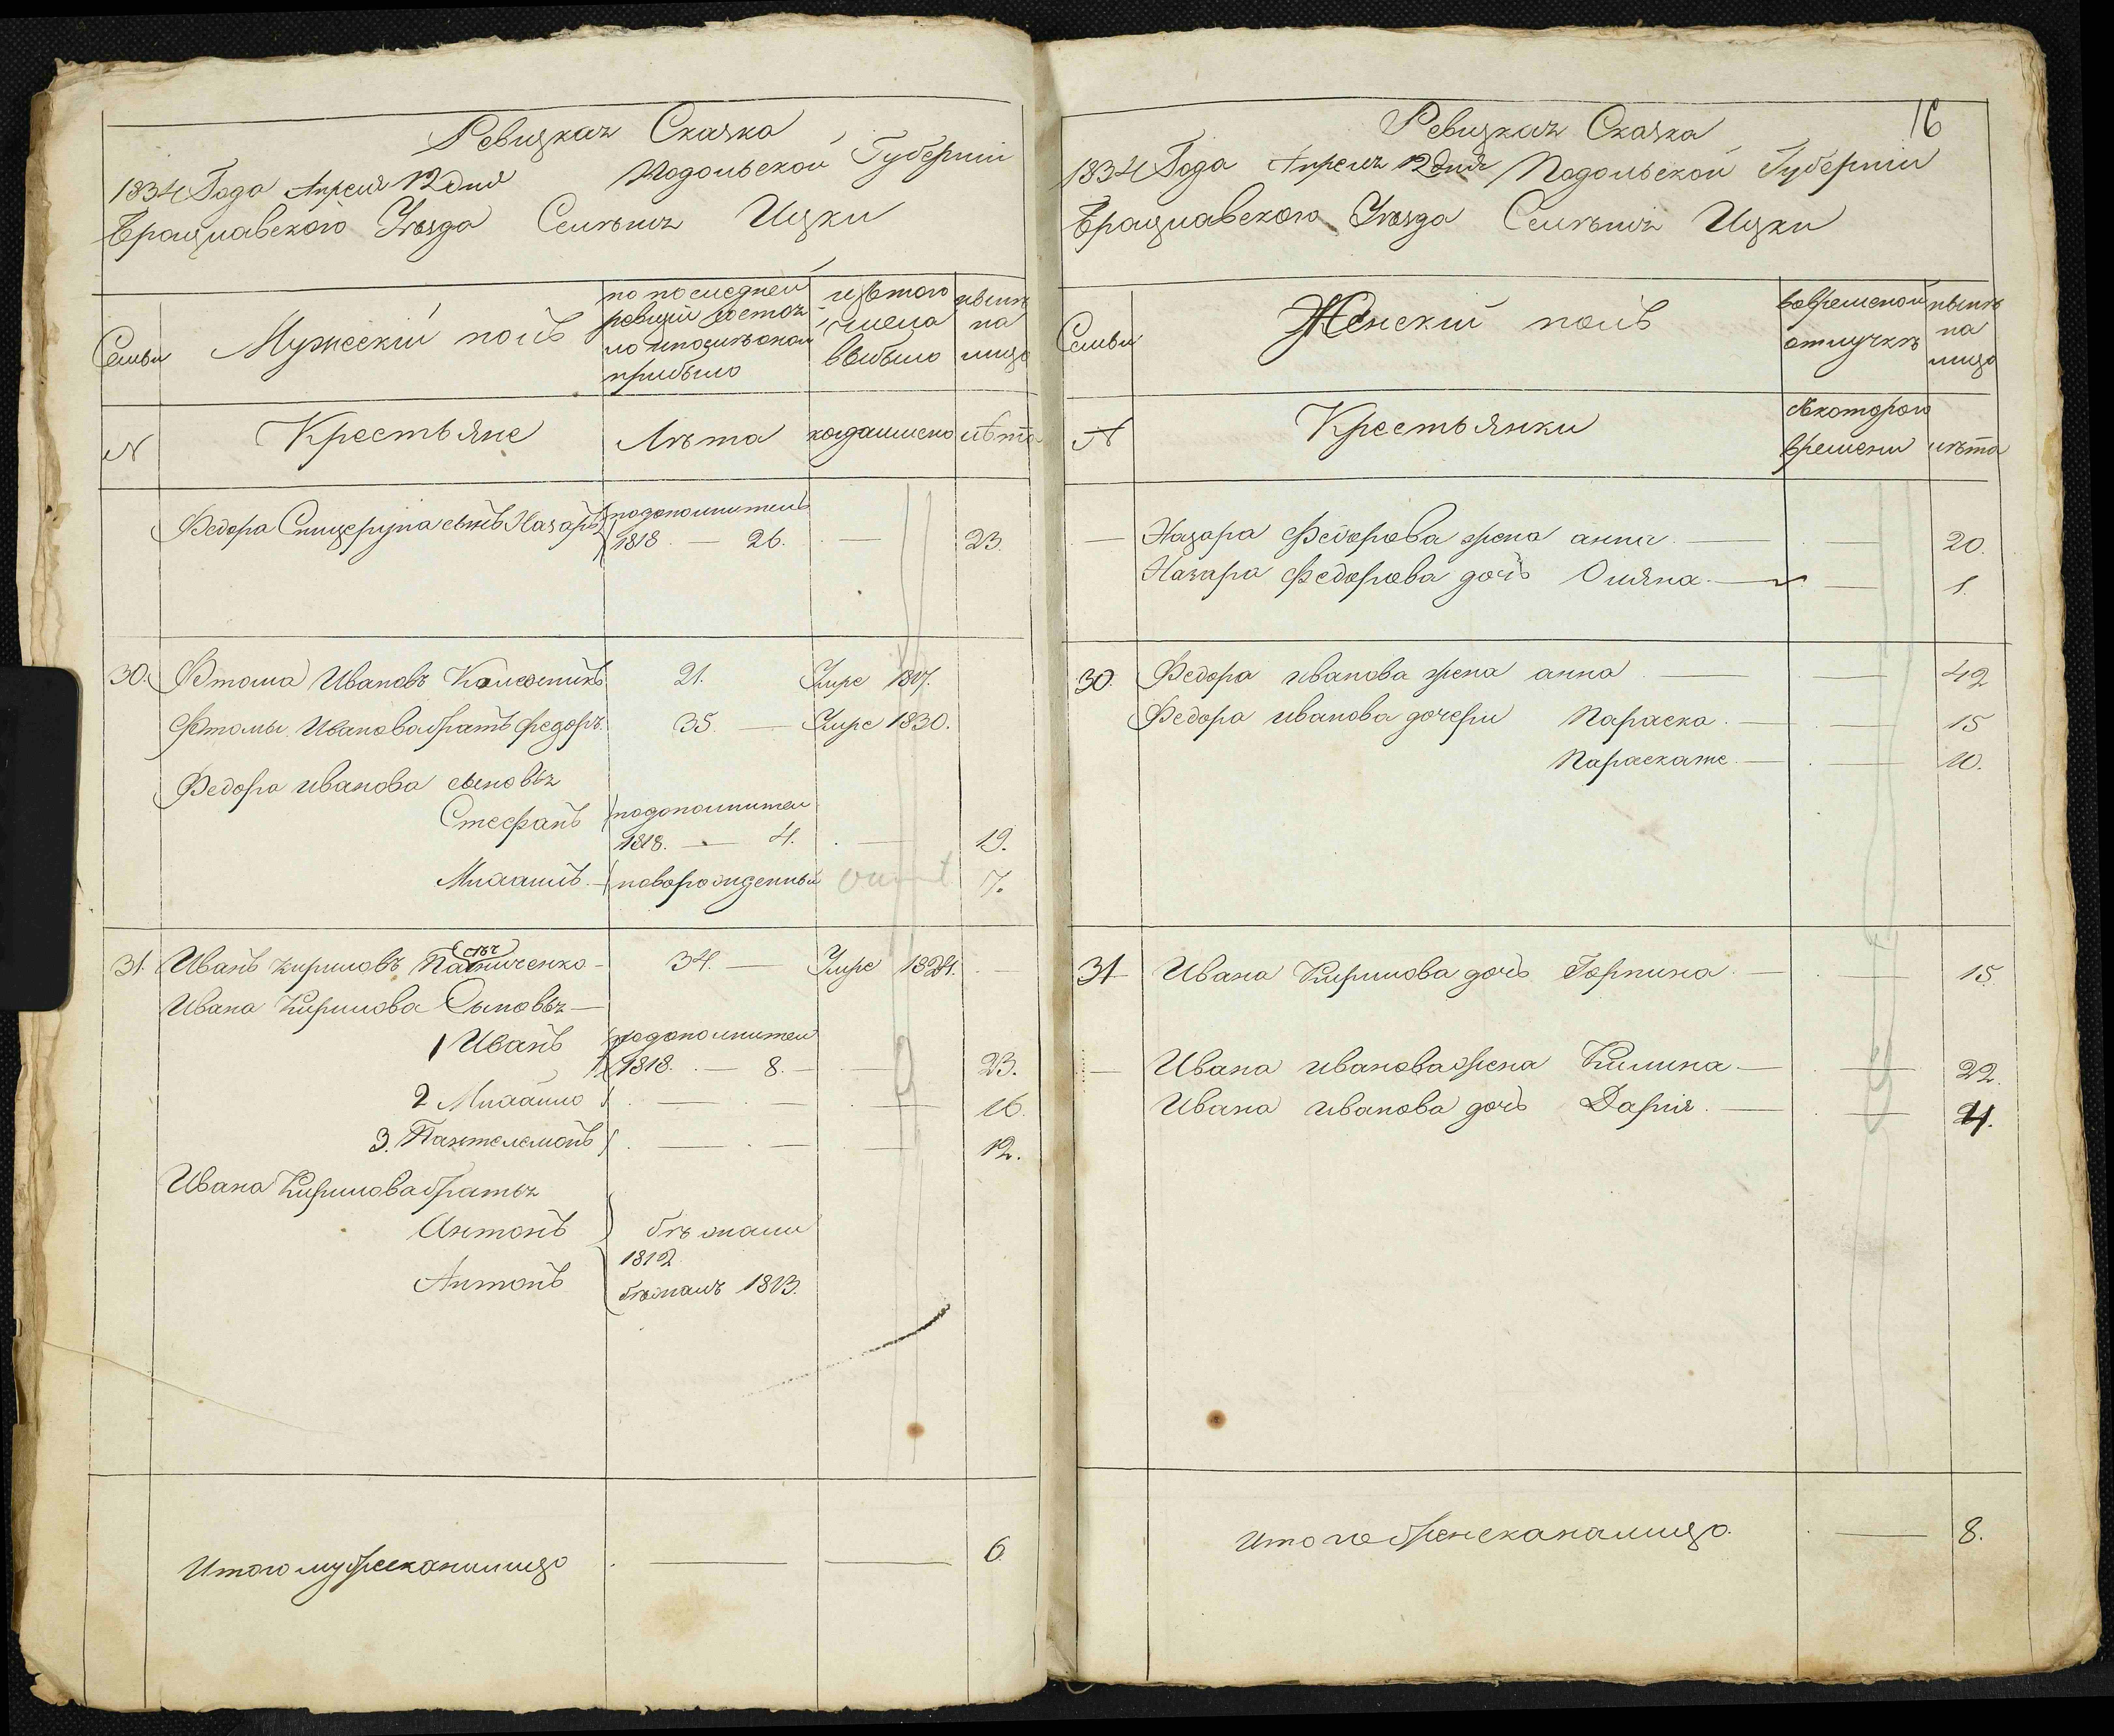 Ревизкая Сказка
1834 Года Апреля 12 дня Подольской Губернии
Брацлавского Уезда Селения
Семьи
Мужеский полъ
по последней
ревизии состоя
ло и после оной
прибыло
изъ того
числа
выбыло
ныне
на
лицо
N
Крестьяне
Лѣта
когда именно
лѣта
Федора сынъ Назаръ
подополнител
1818 — 26. — 23.
30. Ѳтома Ивановъ 21. Умре
Ѳтомы Иванова братъ Федоръ 35. — Умре 1830.
Федора Иванова сыновья
Стефанъ
подополнител
1818. — 4. — 19.
Михайлъ новорожденный 7.
31. Иванъ Кириловъ 34. — Умре
Ивана Кирилова Сыновья —
1 Иванъ
подополнител
1818. — 8. — 23.
2 Михайло — 16.
3. Пантелемонъ — 12.
Ивана Кирилова братья
Антонъ бѣжали
1812
Антонъ
бѣжалъ
Итого мужеска на лицо — — 6
16
Ревизкая Сказка
1834 Года Апреля 12 дня Подольской Губернии
Брацлавского Уезда Селения
Семьи
Женский полъ
вовременой
отлучкѣ
ныне
на
лицо
N
Крестьянки
с которого
времени
лѣта
— Назара Федорова жена анна — — 20.
Назара Федорова дочь Оляна — — 1.
30. Федора иванова жена анна — — 42
Федора иванова дочери Параска — — 15
— — 10.
31 Ивана Кирилова дочь Горпина — — 15
— Ивана иванова жена Килина — — 22.
Ивана иванова дочь Дария — — 4.
Итого женска на лицо — 8.